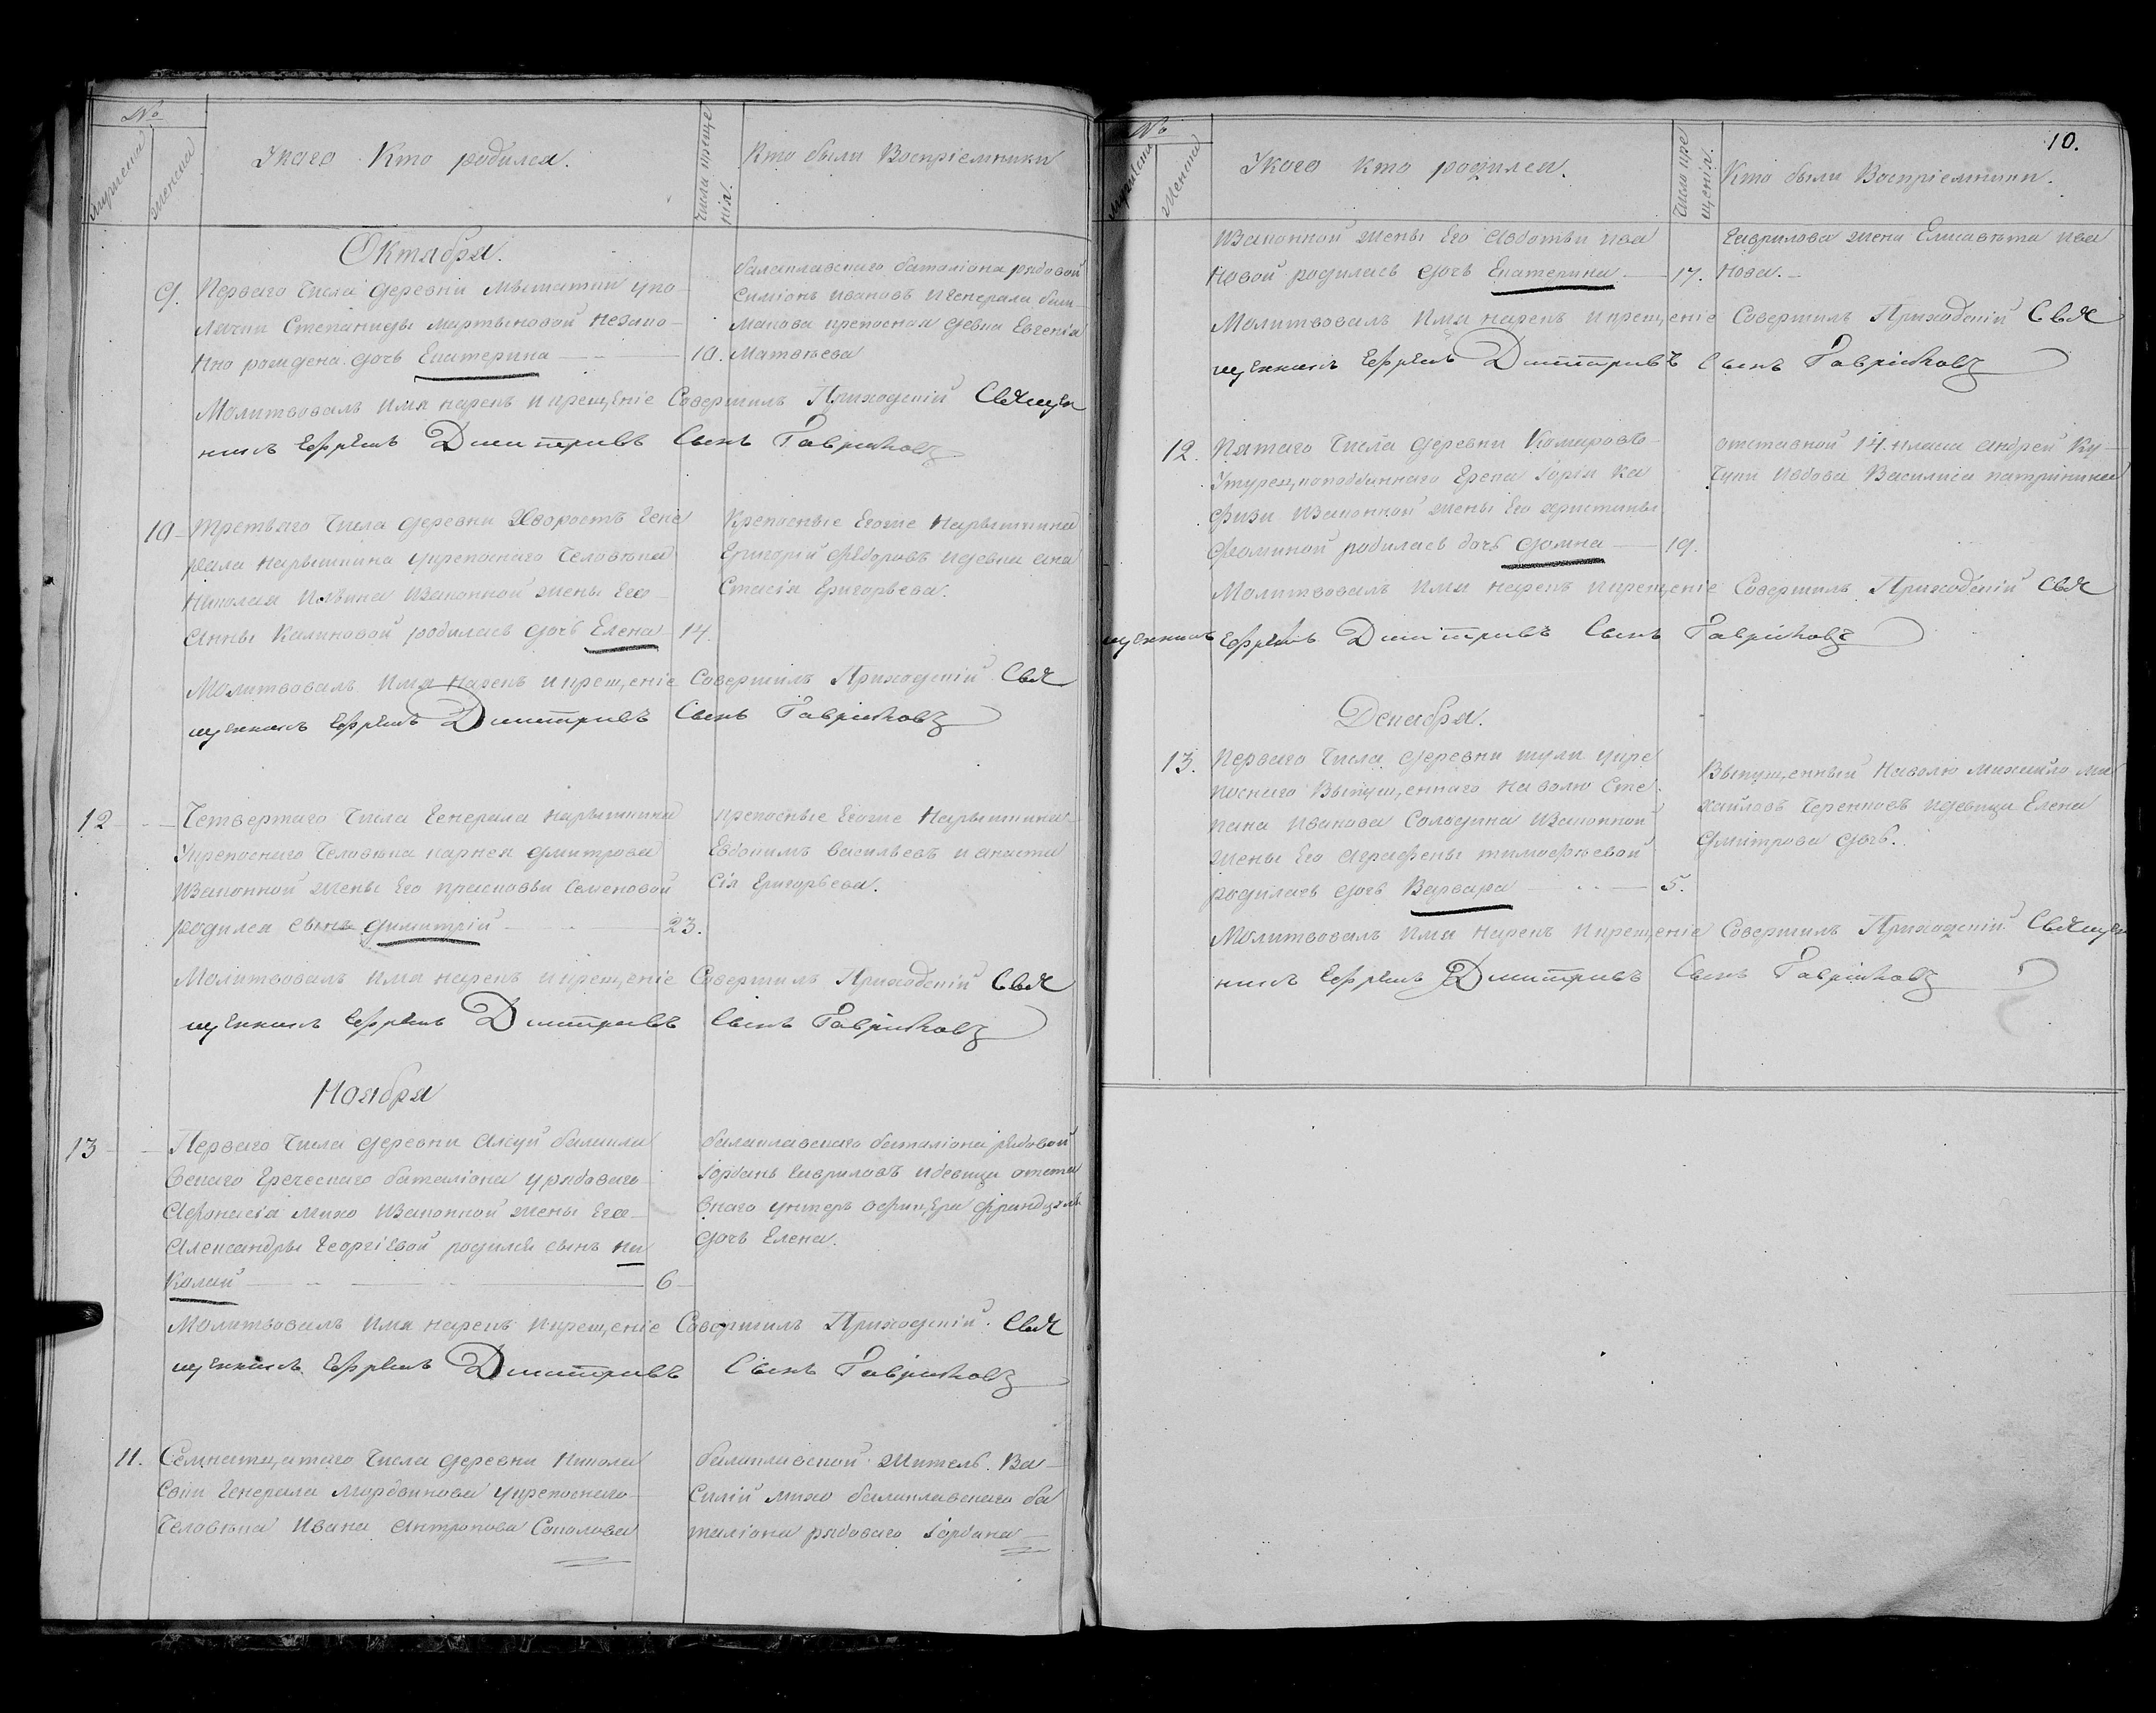 №
мужеска
женска
Укого Кто родился.
Число креще
нія.
Кто были Воспріемники
Октября.
9. Перваго Числа деревни
Лячки Степаниды Мартыновой незако
нно рождена дочь Екатерина 10.
балаклавскаго баталіона рядовой
Симіонъ Ивановъ Игенерала
крепосная девка Евгенія
Матвѣева
Молитвовалъ Имя нарекъ икрещеніе Совершилъ Приходскій Священ
никъ Ефремъ Димитривъ Сынъ Гавриковъ
10 Третьяго Числа деревни Хворостъ Гене
рала нарышкина укрепоснаго Человѣка
Николая Ильина Изаконной жены Его
Анны Калиновой родилась дочь Елена 14.
Крепосные Егоже Нарышкина
Григорій Федоровъ идевка Ана
Стасія Григорьева.
Молитвовалъ Имя нарекъ икрещеніе Совершилъ Приходскій Свя
щенникъ Ефремъ Димитривъ Сынъ Гавриковъ
12 Четвертаго Числа Генерала нарышкина
Укрепоснаго Человѣка карнея дмитрова
Изаконной жены Его прасковьи Семеновой
родился сынъ димитрій 23.
крепосные Егоже Нарышкина
Евдокимъ Васильевъ и анаста
сія Григорьева.
Молитвовалъ Имя нарекъ икрещеніе Совершилъ Приходскій Свя
щенникъ Ефремъ Дмитривъ Сынъ Гавриковъ
Ноября
13 Перваго Числа деревни Алсуй балакла
Вскаго Греческаго баталіона урядоваго
Афонасія Михо Изаконной жены Его
Александры Георгіевой родился сынъ Ни
Колай 6
балаклавскаго баталіона рядовой
Іорданъ Гавриловъ идевица отста
внаго унтеръ офицера
дочь Елена.
Молитвовалъ Имя нарекъ икрещеніе Совершилъ Приходскій Свя
щенникъ Ефремъ Димитривъ Сынъ Гавриковъ
11. Семнатцатаго Числа деревни Никола
евки Генерала Мордвинова укрепоснаго
Человѣка Ивана Антропова Соколова
балаклавской житель Ва
Силій михо балаклавскаго ба
таліона рядоваго Іордана
10.
№
мужеска
Женска
Укого кто родился.
Число кре
щенія.
Кто были Воспріемники.
Изаконной жены Его Авдотьи Ива
Новой родилась дочь Екатерина 17.
Гаврилова жена Елисавѣта Ива
Нова.
Молитвовалъ Имя нарекъ икрещеніе Совершилъ Приходскій Свя
щенникъ Ефремъ Димитривъ Сынъ Гавриковъ
12. Пятаго Числа деревни Комаровъ
Утурецкоподданнаго Грека Іоргія Ка
физи Изаконной жены Его христины
Фоминой родилась дочь домна 19.
отставной 14. класа андрей Ку
Цуки Ивдова Василиса патрикина
Молитвовалъ Имя нарекъ икрещеніе Совершилъ Приходскій Свя
щенникъ Ефремъ Димитривъ Сынъ Гавриковъ
Декабря.
13. Перваго Числа деревни шули укре
поснаго Выпущеннаго на волю Сте
пана Иванова Солодина Изаконной
жены Его аграфены тимофѣевой
родилась дочь Варвара 5.
Выпущенный Наволю михайло ми
хайловъ Черенковъ идевица Елена
дмитрова дочь.
Молитвовалъ Имя нарекъ икрещеніе Совершилъ Приходскій Священ
никъ Ефремъ Димитривъ Сынъ Гавриковъ